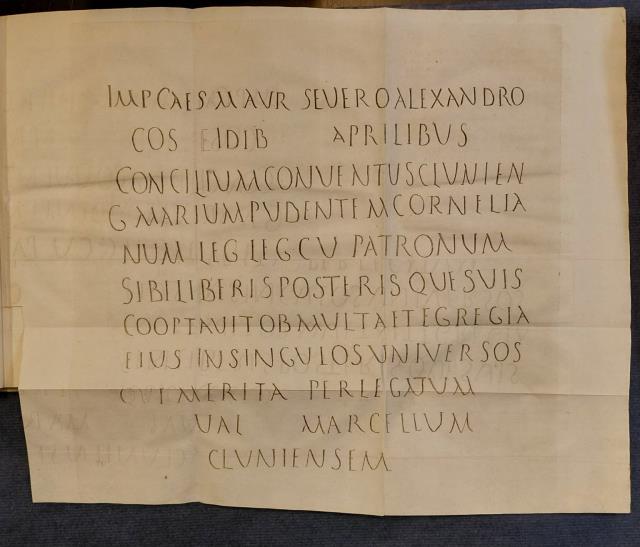 IMP CAES M AVR SEVERO ALEXANDRO
COS EIDIB APRILIBUS
CONCILIUM CONVENTUS CLUNIEN
G MARIUM PUDENTEM CORNELIA
NUM LEG LEG CU PATRONUM
SIBI LIBERIS POSTERISQUE SUIS
COOPTAVIT OB MULTA ET EGREGIA
EIUS IN SINGULOS UNIVERSOS
QUE MERITA PER LEGATUM
UAL MARCELLUM
CLUNIENSEM